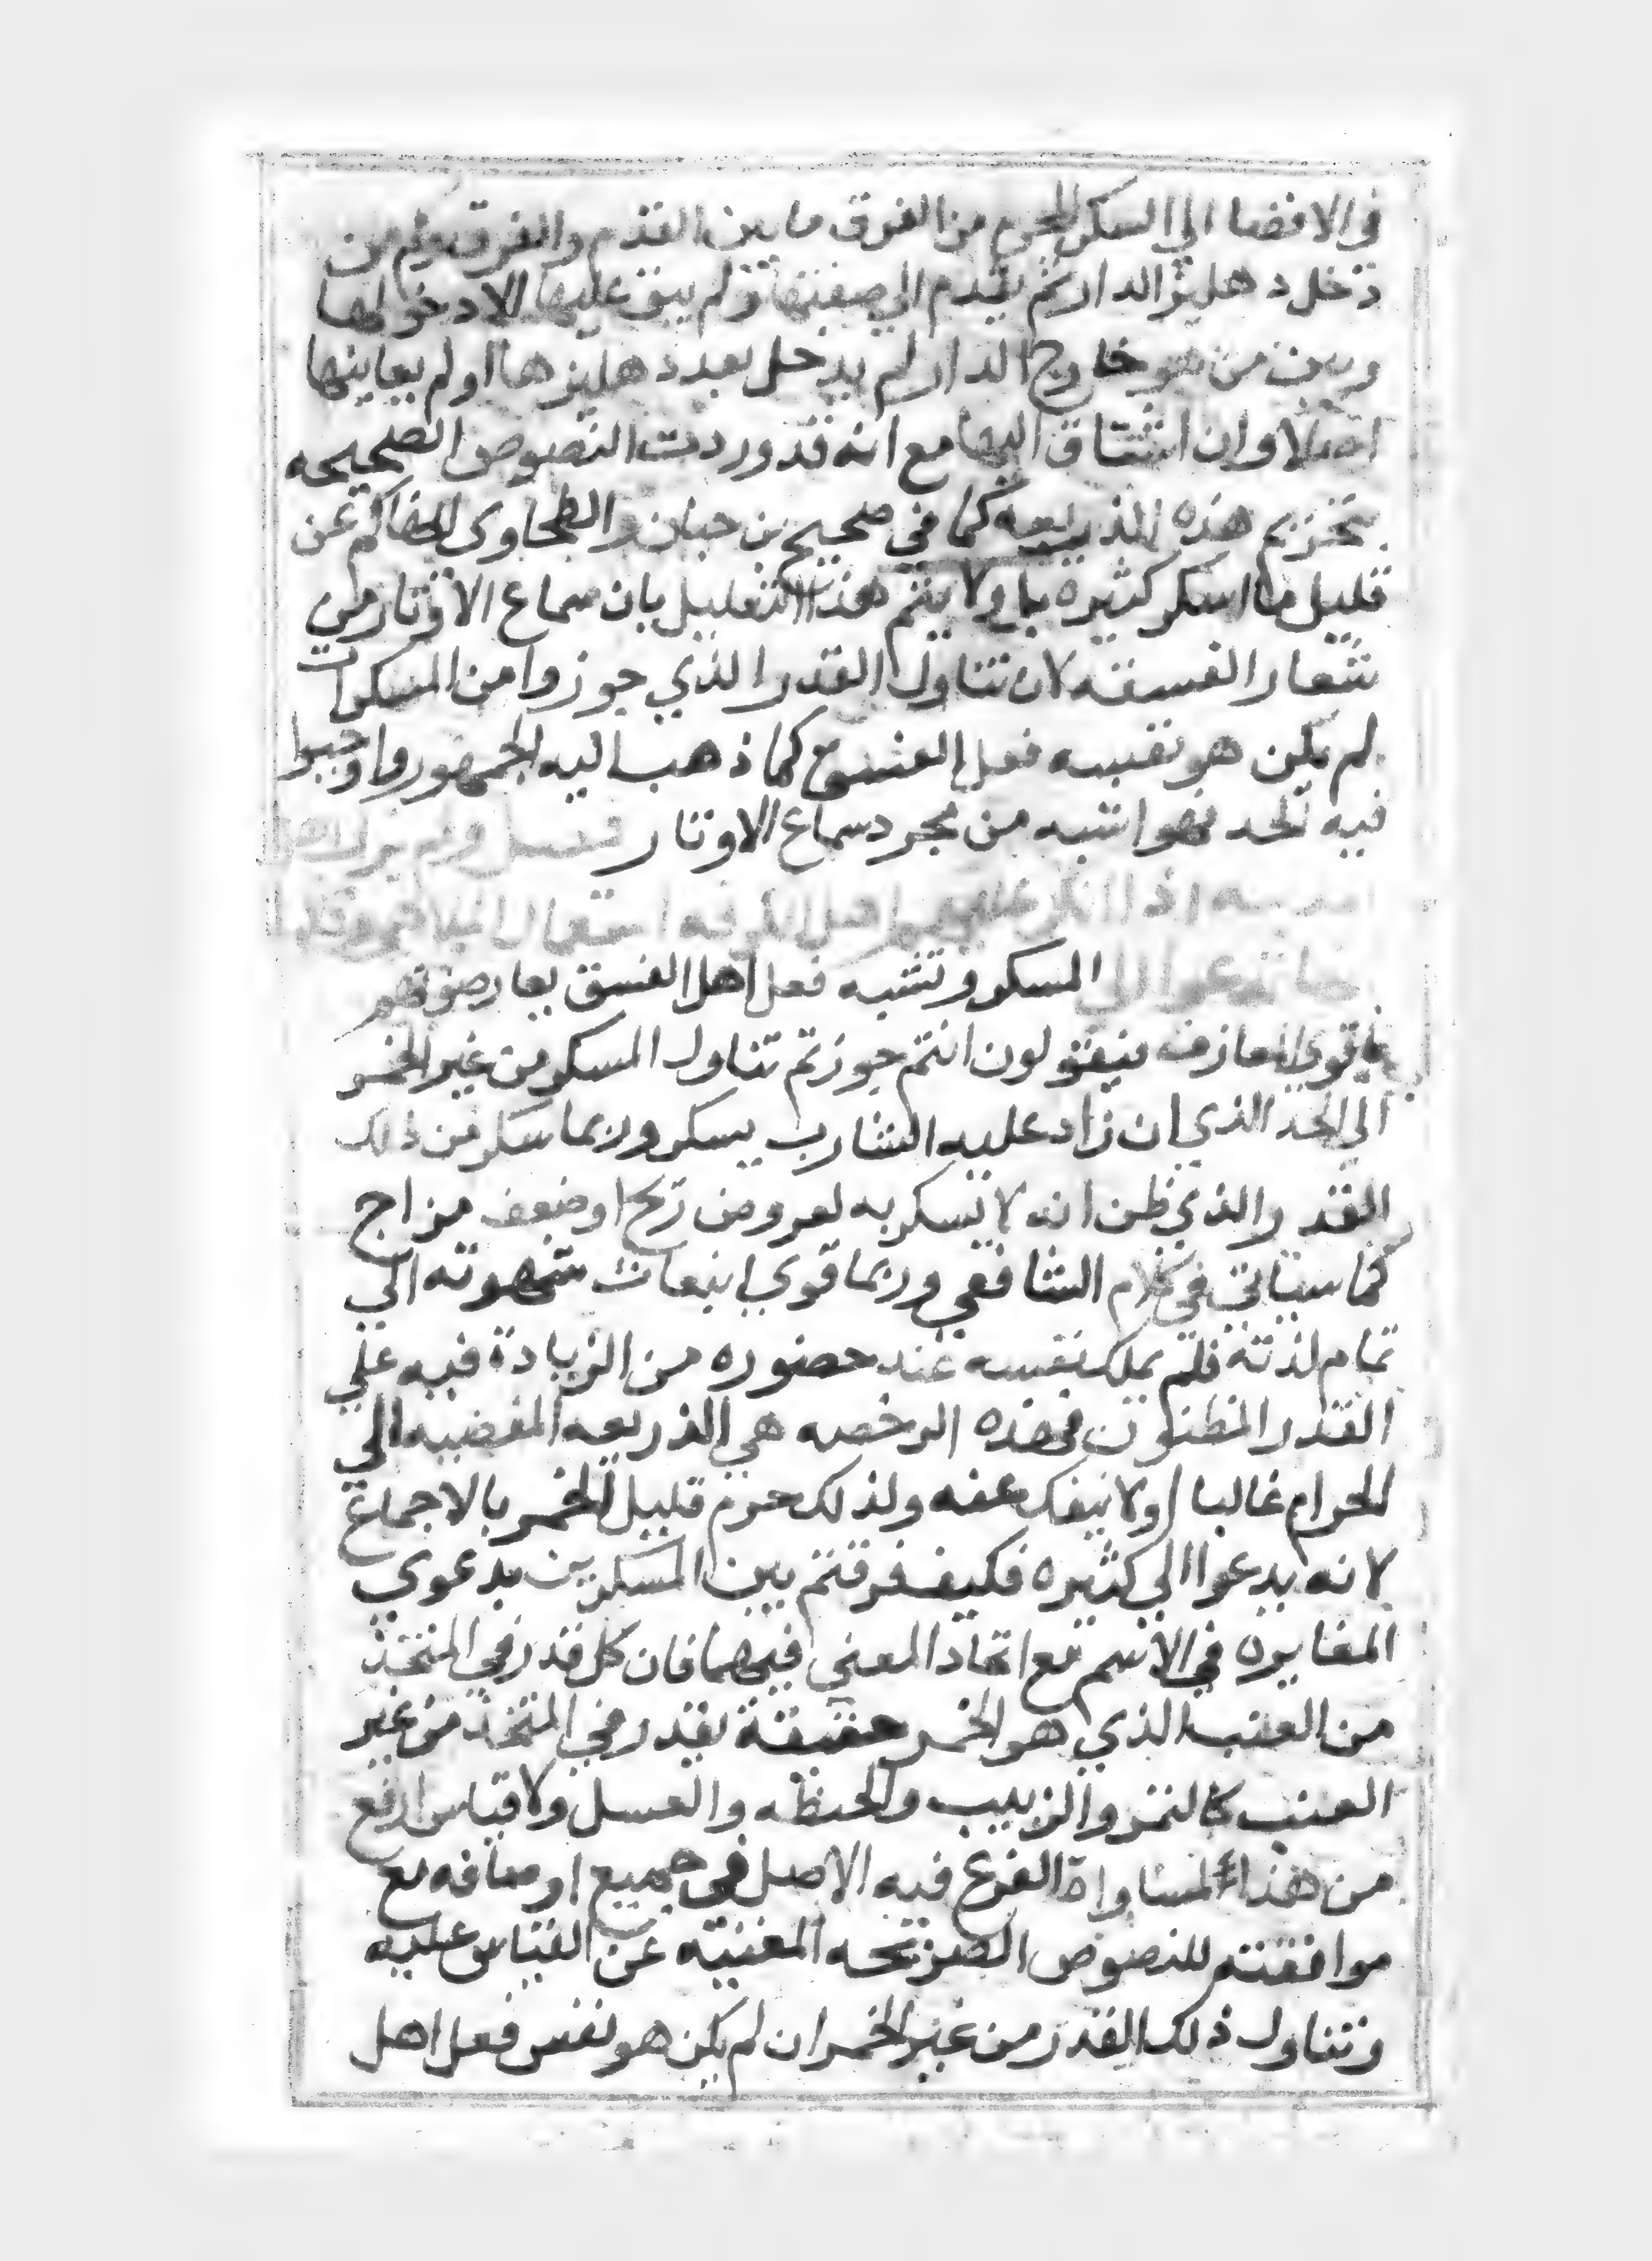 في الافضا الي السكر المحرم من الفرق ما بين القدم والفرق ولم من
دخل دهليز الدار ثم تقدم الي صفتها ولم يبق عليها الا دخولها
وبين من هو خارج الدار لم يدخل بعد دهليزها او لم يعاينها
اصلا وان اشتاق اليها مع انه قد وردت النصوص الصحيحه
بتحريم هذه الذريعه كما في صحيح بن حبان والطحاوي الحاكم عن
قليل ما اسكر كثيره ولا يتم هذا التعليل بان سماع الاوتار من
شعار الفسقه لان تناول القدر الذي جوزوا من المسكرات
لم يكن هو نفسه فعل الفسوق كما ذهب اليه الجمهور واوجبوا
فيه الحد فهو اشبه من مجرد سماع الاوتار فصل ولم يزل اهل
اذا انكر عليهم اهل الكوفه استعمال الملاهي
تدعوا الي المسكر وتشبه فعل اهل الفسق يعارضونهم
باقوي معارضه فيقولون انتم جوزتم تناول المسكر من غير الخمر
الي الحد الذي ان زاد عليه الشارب يسكر وربما سكر من ذلك
القدر والذي ظن انه لا يسكر به لعروض ريح او ضعف مزاج
كما سياتي في كلام الشافعي وربما قوي انبعاث شهوته الي
تمام لذته فلم يملك نفسه عند حضوره من الزيادة فيه علي
القدر المظنون فهذه الرخصه هي الذريعه المفضيه الي
الحرام غالبا او لا ينفك عنه ولذلك حرم قليل الخمر بالاجماع
لانه يدعوا الي كثيره فكيف فرقتم بين المسكرين بدعوي
المغايره في الاسم مع اتحاد المعني فيهما فان كل قدر في المتخذ
من العنب الذي هو الخمر حقيقة بقدر في المتخذ من غير
العنب كالتمر والزبيب والحنطه والعسل ولا قياس ارفع
من هذا لمساواة الفرع فيه الاصل في جميع اوصافه مع
موافقته للنصوص الصريحه المغنيه عن القياس عليه
وتناول ذلك القدر من غير الخمر ان لم يكن هو نفس فعل اهل